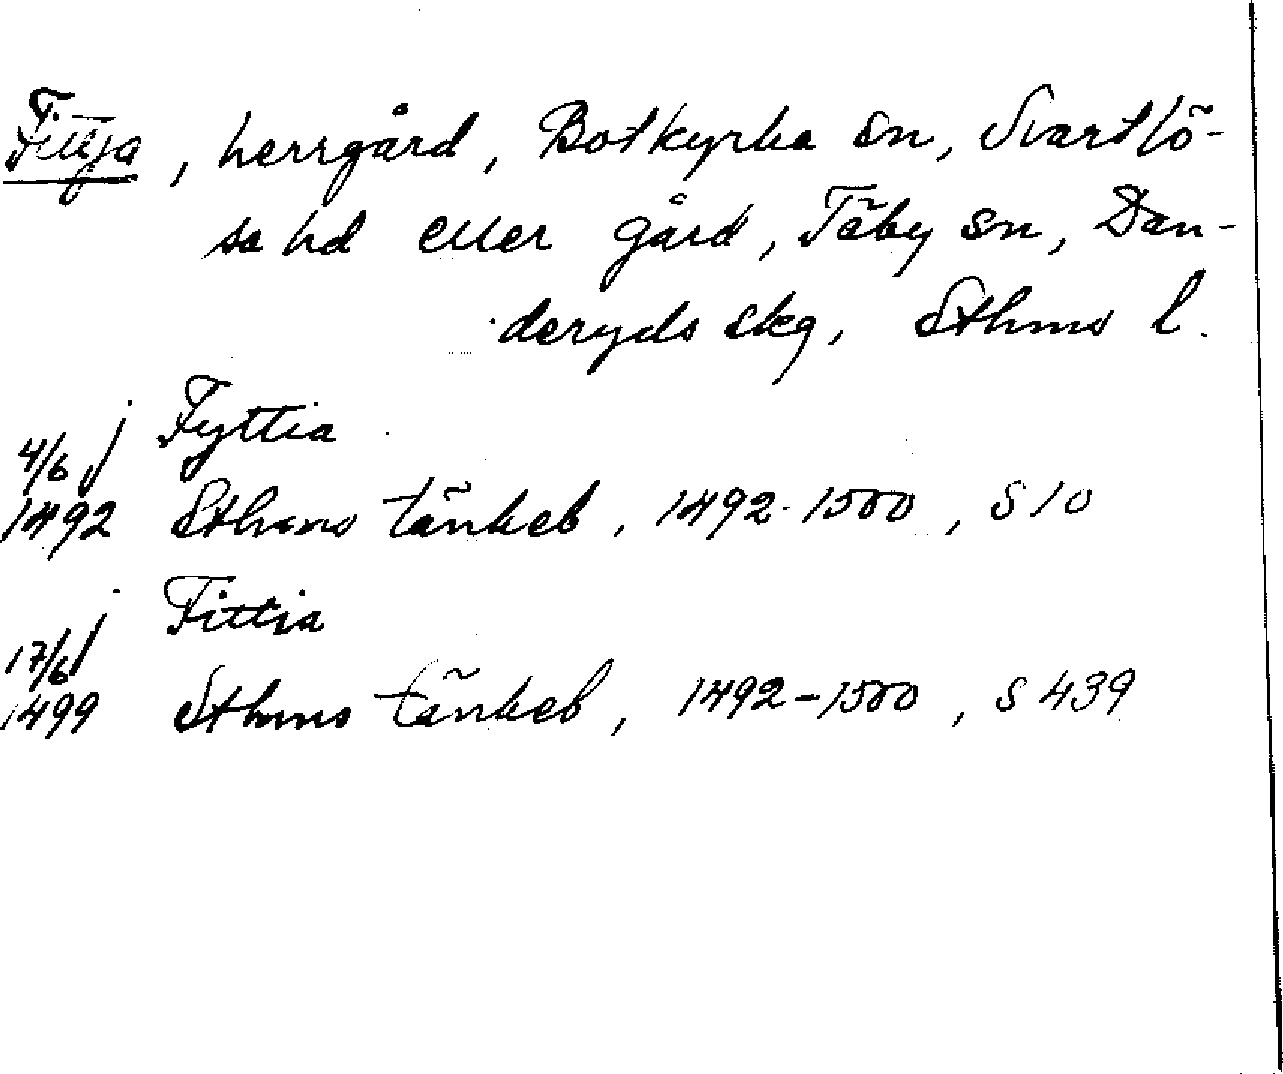 Fittja, herrgård, Botkyrka sn, Svartlö-
sa hd eller gård, Täby sn, Dan-
deryds skg, Sthms l.
j Fyttia
4/6
1492 Sthms tänkeb, 1492-1500, S 10
j Fittia
17/6
1499 Sthms tänkeb, 1492-1500, s 439